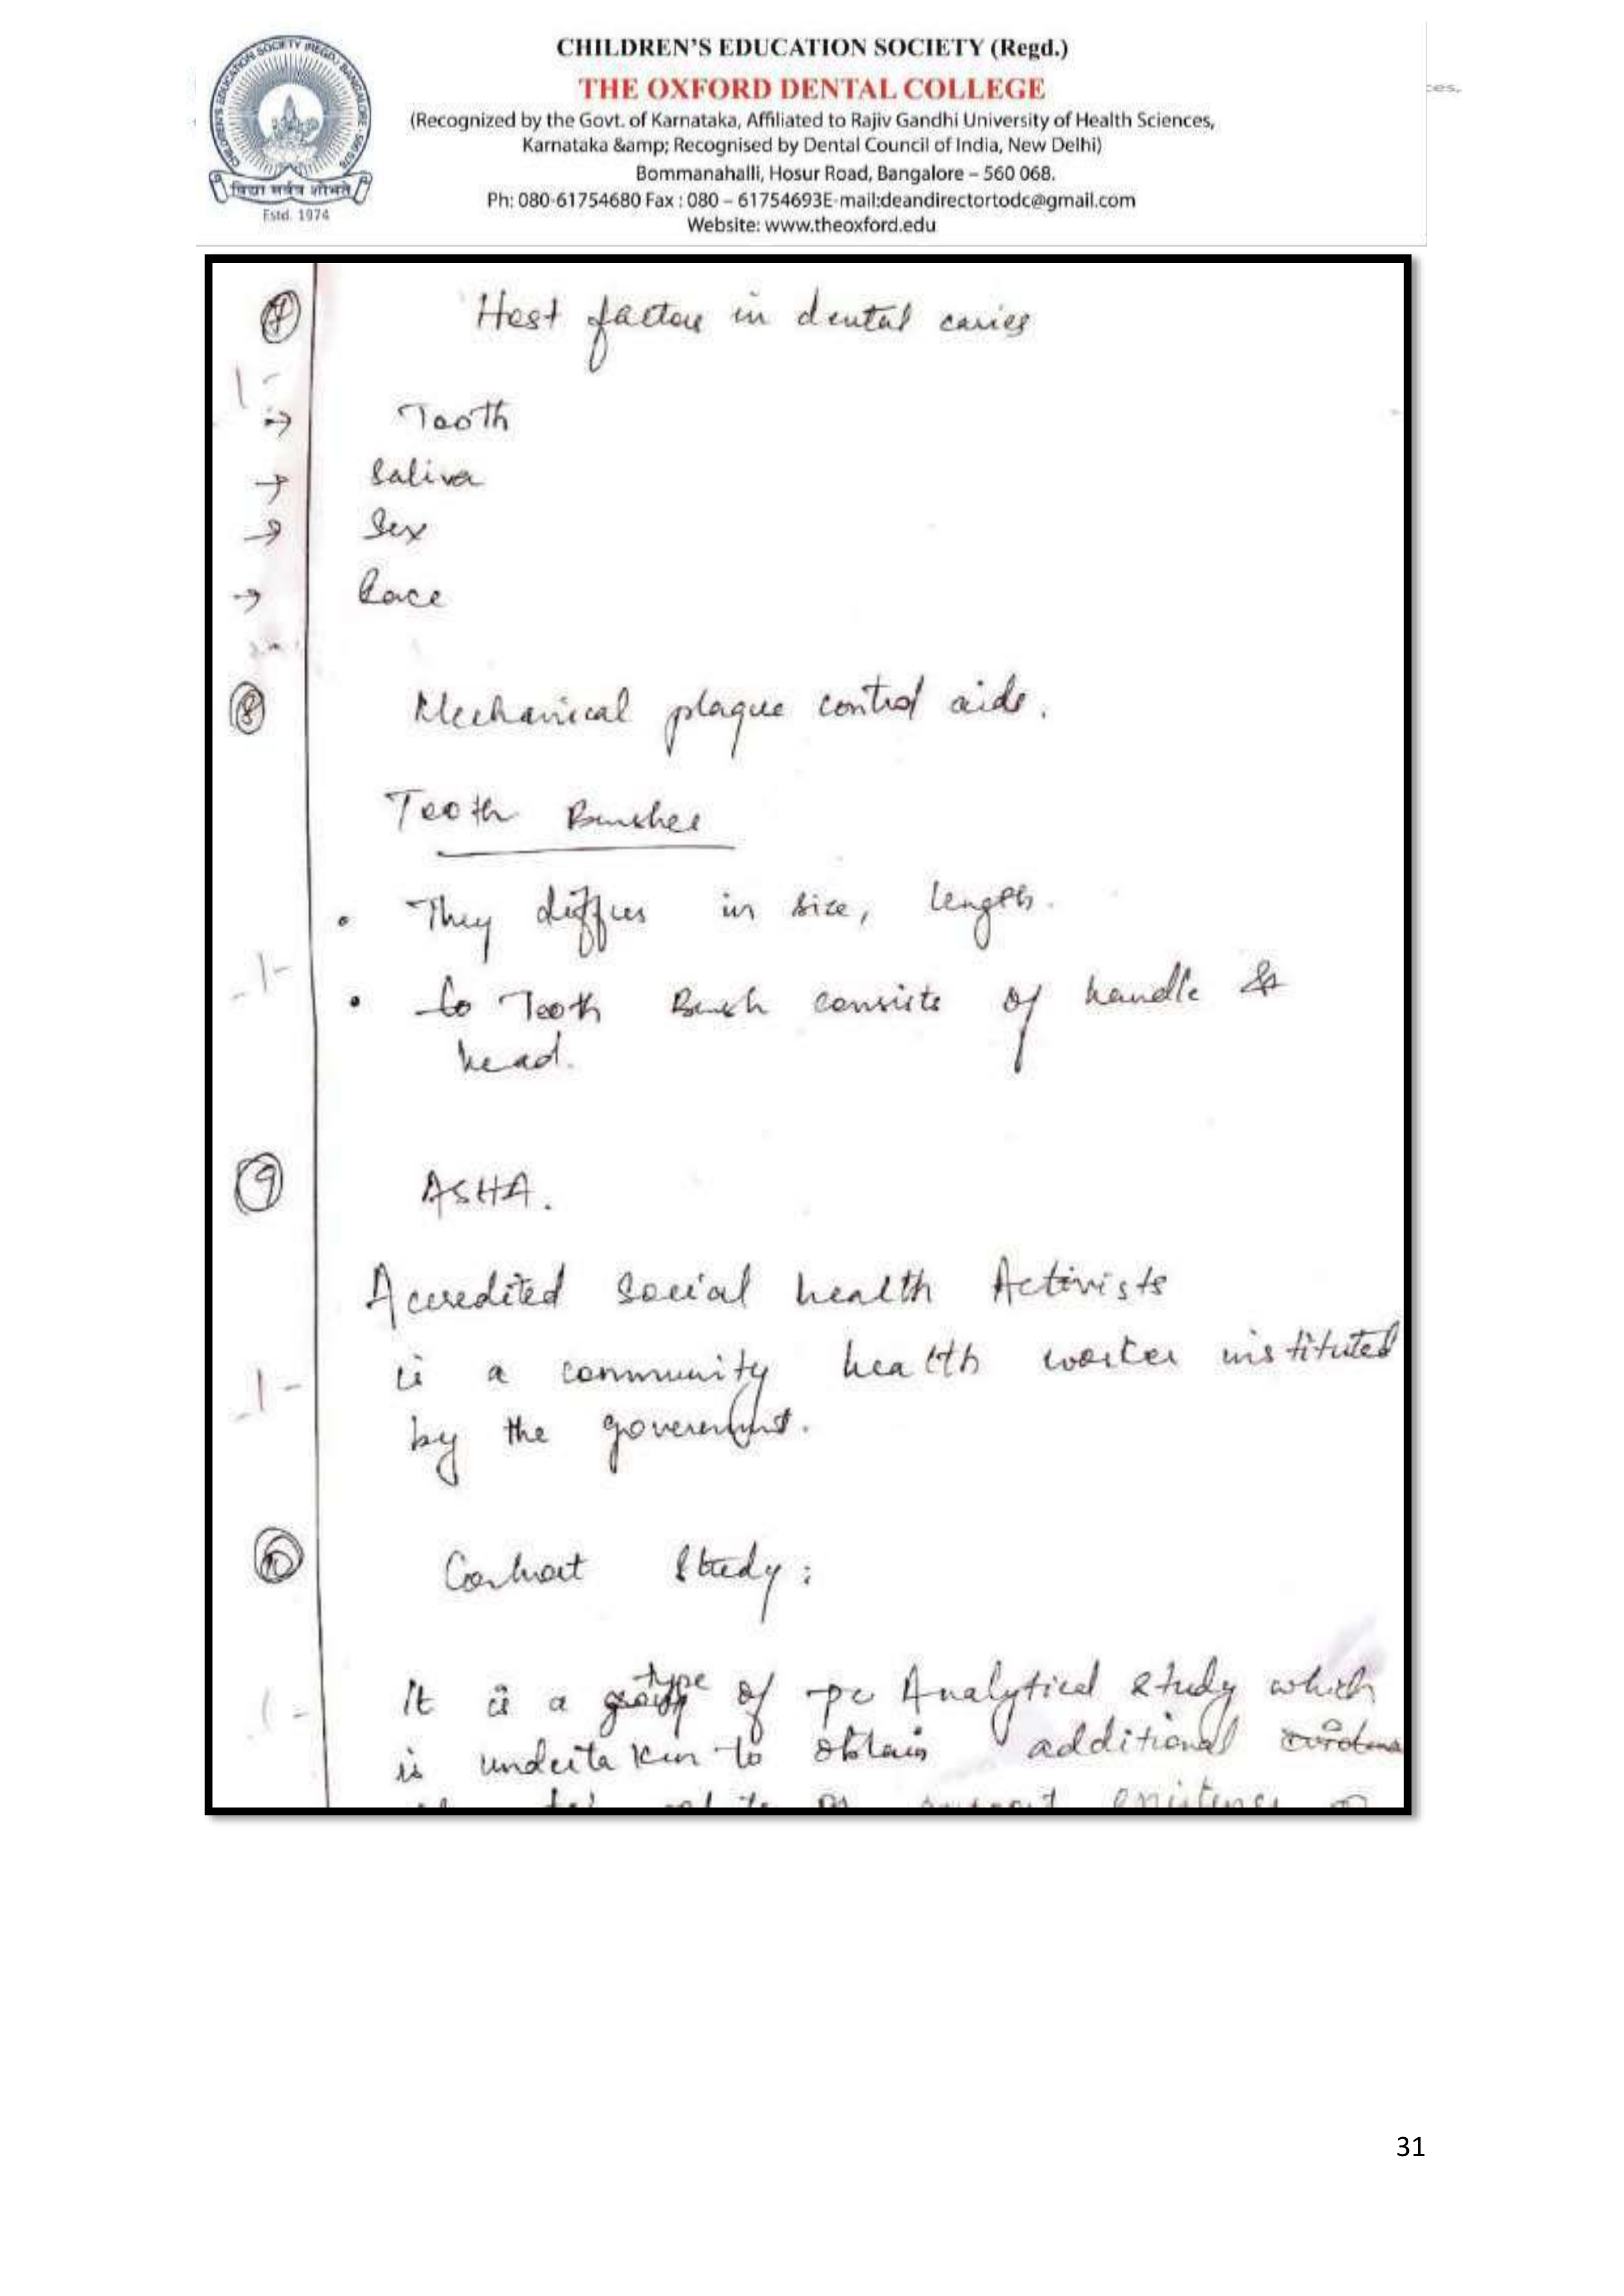 CHILDREN'S EDUCATION SOCIETY (REGD.) BANGALORE - 560 078
विद्या सर्वत्र शोभते
Estd. 1974
CHILDREN'S EDUCATION SOCIETY (Regd.)
THE OXFORD DENTAL COLLEGE
(Recognized by the Govt. of Karnataka, Affiliated to Rajiv Gandhi University of Health Sciences,
Karnataka &amp; Recognised by Dental Council of India, New Delhi)
Bommanahalli, Hosur Road, Bangalore – 560 068.
Ph: 080-61754680 Fax : 080 – 61754693E-mail:deandirectortodc@gmail.com
Website: www.theoxford.edu
ces,
7 Host factors in dental caries
1-
→ Tooth
→ Saliva
→ Sex
→ Race
8 Mechanical plaque control aids.
Tooth Brushes
• They differs in size, length.
-1-
• to Tooth Brush consists of handle &
head.
9 ASHA.
Accredited Social health Activists
is a community health worker instituted
-1-
by the government.
10 Corhort Study:
It is a group type of Analytical study which
1-
is undertaken to obtain additional
31